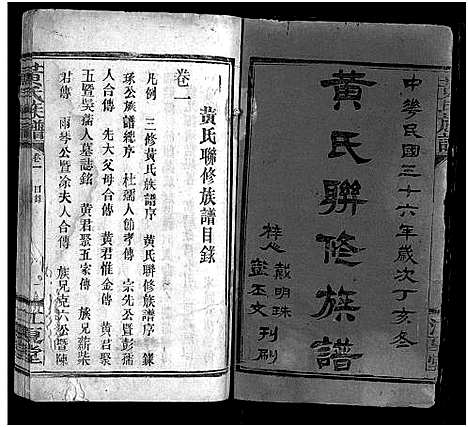 中華民國三十六年歲次丁亥冬
黃氏聯修族譜
梓心 戴明珠
刊刷
黃氏聯修族譜目錄
卷一
凡例 三修黃氏族譜序 黃氏聯修族譜序
球公族譜總序 杜孺人節孝傳 宗先公暨彭孺
人合傳 先大父母合傳 黃君惟金傳 黃君聚
五暨吳孺人墓誌銘 黃君聚五家傳 族兄薪柴
君傳 雨琴公暨凃夫人合傳 族兄克六公暨陳
黃氏族譜
卷一 目錄
江夏堂